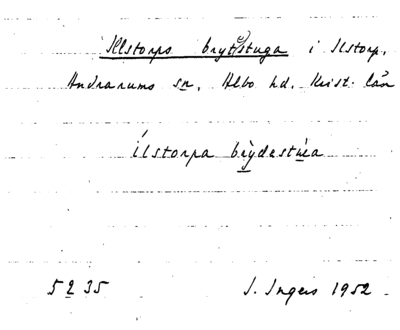 Illstorps brytstuga i Ilstorp,
Andrarums sn, Albo hd. Krist. län
Ílstorpa brỳdestùa
5235 I. Ingers 1952